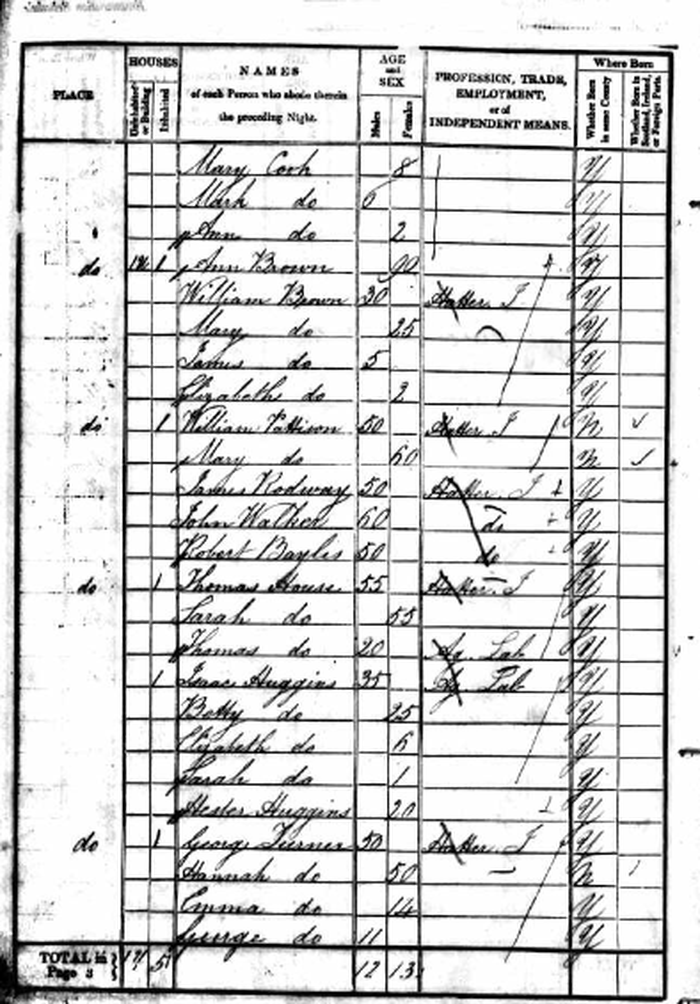 PLACE HOUSES NAMES of each Person who abode therein the preceding Night. AGE and SEX PROFESSION, TRADE, EMPLOYMENT, or of INDEPENDENT MEANS. Where Born
Uninhabited or Building Inhabited Males Females Whether Born in same County Whether Born in Scotland, Ireland, or Foreign Parts.
Mary Cook 8 Y
Mark do 6 Y
Ann do 2 Y
do 1 Ann Brown 90 Y
William Brown 30 Hatter J Y
Mary do 25 Y
James do 5 Y
Elizabeth do 2 Y
do 1 William Pattison 50 Hatter J N
Mary do 60 N
James Rodway 50 Hatter J Y
John Walker 60 do Y
Robert Baylis 50 do Y
do 1 Thomas House 55 Hatter J Y
Sarah do 55 Y
Thomas do 20 Ag. Lab Y
1 Isaac Huggins 35 Ag. Lab Y
Betty do 25 Y
Elizabeth do 6 Y
Sarah do 1 Y
Hester Huggins 20 Y
do 1 George Turner 50 Hatter J Y
Hannah do 50 N
Emma do 14 Y
George do 11 Y
TOTAL in Page 3 5 12 13